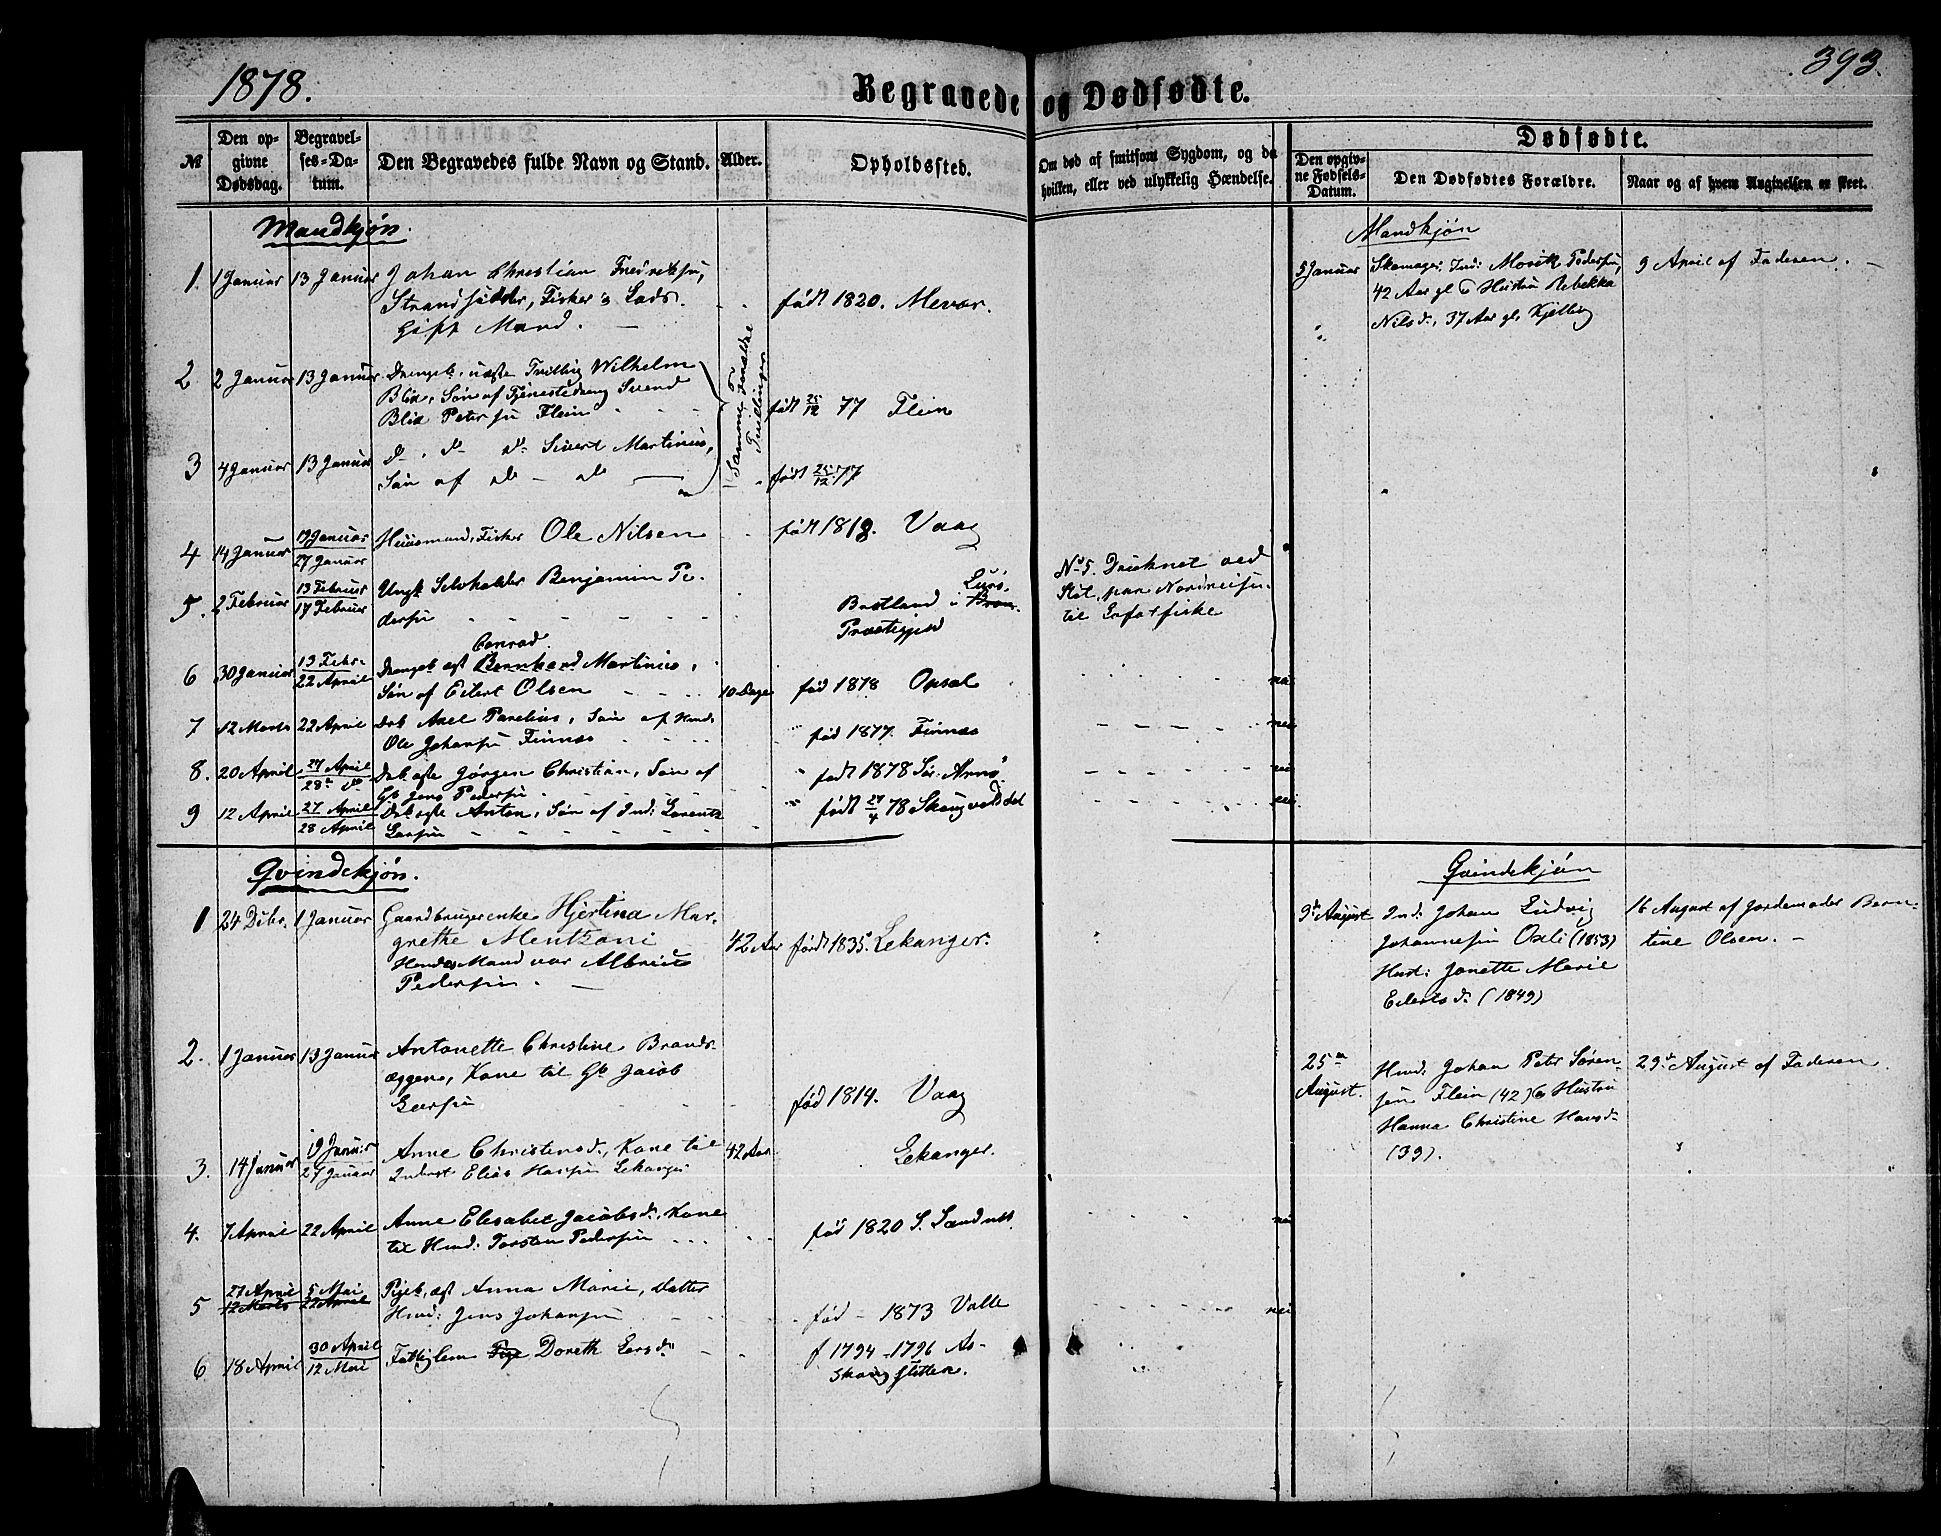 1878.
Begravede og Dødfødte.
393.
№
Den opgivne Dødsdag.
Begravelses-Datum.
Den Begravedes fulde Navn og Stand.
Alder.
Opholdssted.
Om død af smitsom Sygdom, og da hvilken, eller ved ulykkelig Hændelse.
Dødfødte.
Den opgivne Fødsels-Datum.
Den Dødfødtes Forældre.
Naar og af hvem Angivelsen er skeet.
Mandkjøn.
1. 1 Januar 13 Januar Johan Christian Fredriks,
Fisker
Gift Mand.
født 1820. Mevær.
2. 2 Januar 13 Januar Drengeb. uægte Tvilling Wilhelm
Blix, Søn af Tjenestedreng Svend
Blix Peters Flein
født 25/12 77 Flein
Samme Forældre
Tvillinger
3 4 Januar 13 Januar do. do do Sivert Martinus,
Søn af do - do
født 25/12 77
4 14 Januar 19 Januar
27 Januar
Huusmand, Fisker Ole Nilsen født 1818. Vaag
5. 2 Februar 13 Februar
17 Februar
Ungk. Selvholder Benjamin Pe-
dersen
Lurø
Bratland i
Præstegjeld
No 5. Druknet ved
paa Nordreisen
til Lofotfiske
6 30 Januar 13 Febr.
22 April
Conrad
Drengeb. ægt Bernhard Martinus,
Søn af Eilert Olsen 10 Dage fød 1878 Opsal nei
7 12 Marts 22 April Drb. Axel Parelius, Søn af Hmd.
Ole Johansen Finnæs fød 1877. Finnæs nei
8. 20 April 27 April
28de do
Drb. ægte Jørgen Christian, Søn af
Gb. Jens Pedersen født 1878 Sør. Arnø nei
9 12 April 27 April
28 April
Drb. ægte Anton, Søn af Ind: Lorents
Larsen født 78 nei
Qvindekjøn.
1 24 Dcbr. 1 Januar Gaardbrugerenke Hjertina Mar-
grethe Mentzoni
Hendes Mand var Albrict
Pedersen.
42 Aar født 1835. Lekanger.
2. 1 Januar 13 Januar Antonette Christine Brands-
æggen, Kone til Gb. Jacob
Larsen
fød 1814. Vaag
3. 14 Januar 19 Januar
27 Januar
Anne Christensd., Kone til
Inderst Elias Hansen Lekanger
42 Aar Lekanger.
4. 7 April 22 April Anne Elisabet Jacobsd., Kone
til Hmd: Torsten Pedersen fød 1820 S. Sandnæs. nei
5 27 April 5 Mai
12 Marts 22 April
Pigeb. ægt Anna Marie, Datter
Hmd: Jens Johansen fød - 1873 Valle nei
6 18 April 30 April
12 Mai
Fattiglem Pige Doreth Larsd. f 1794 - 1796
Mandkjøn
5 Januar Ind: Morik Pedersen,
42 Aar gl & Hustru Rebekka
Nilsd., 37 Aar gl, Kjelling
9 April af Faderen. -
Qvindekjøn
9de August Ind: Johan Ludvig
Johannesen Oxli (1853)
Hust: Jonette Marie
Eilertsd. (1849)
16 August af Jordemoder Bern-
tine Olsen. -
25de
August.
Hmd: Johan Peter Søren-
sen Flein (42) & Hustru
Hanna Christine Hansd.
(39).
29de August af Faderen